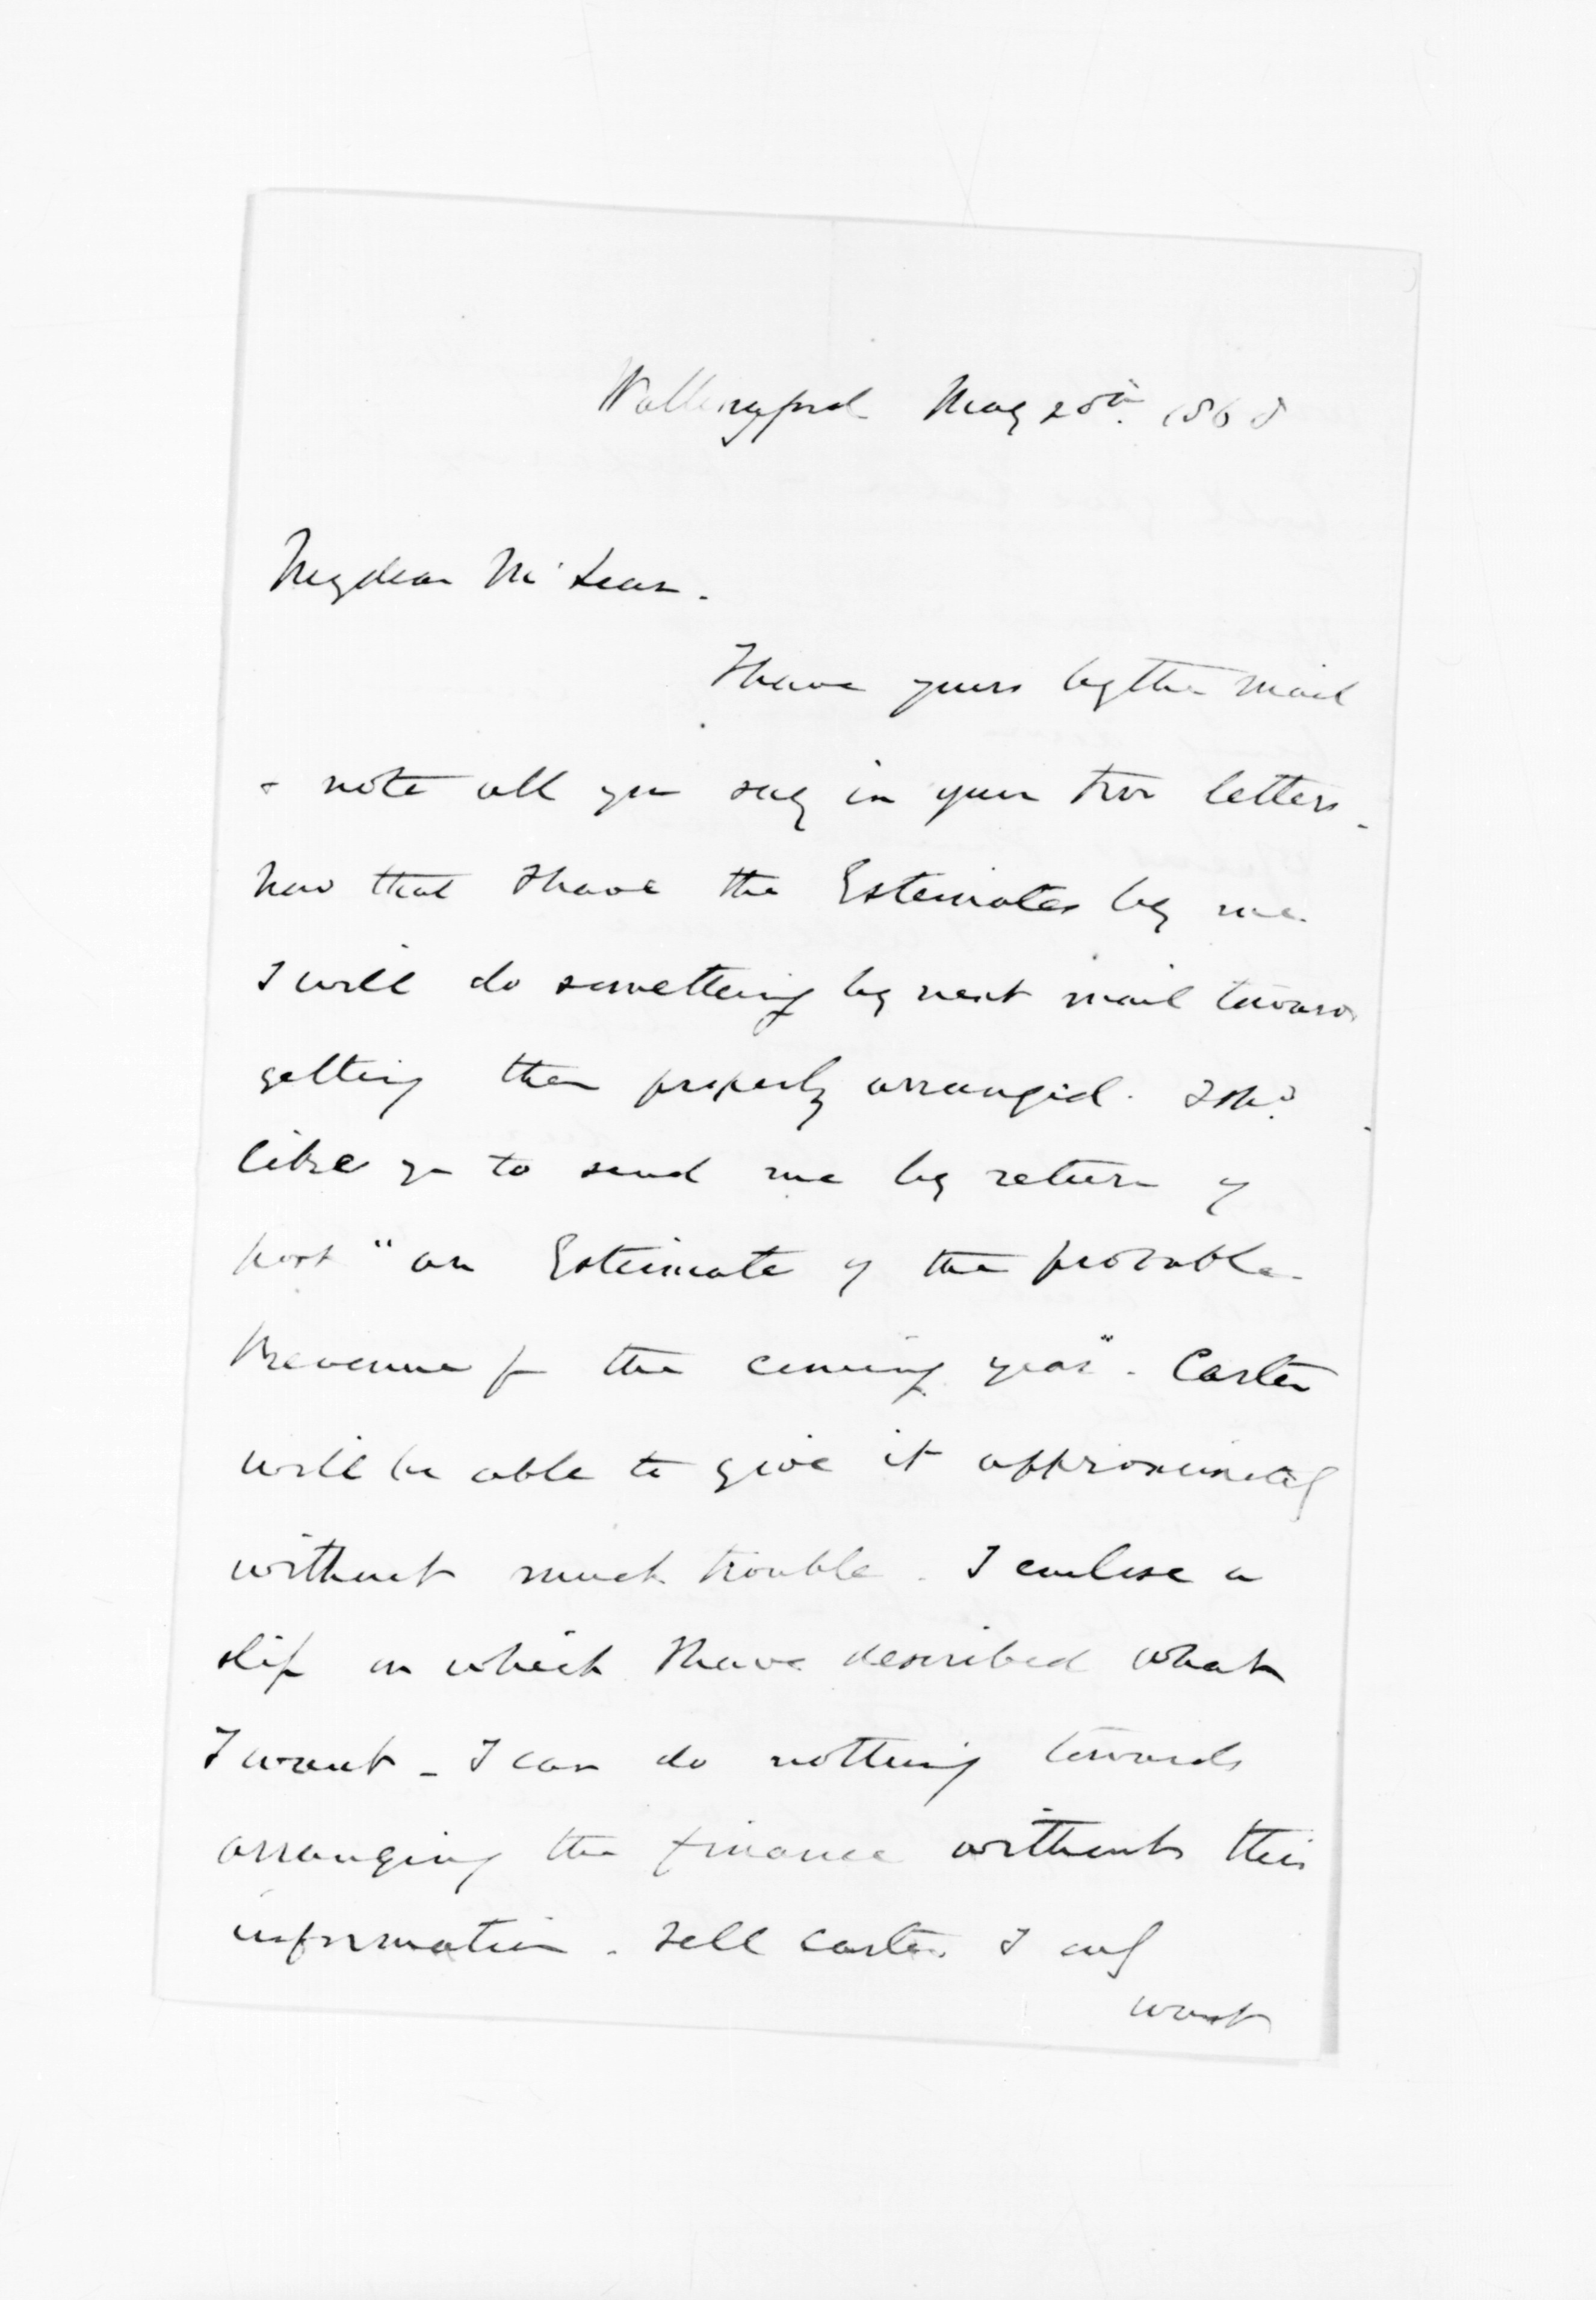 Wallingford May 25th. 1868
My dear McLean.
I have yours by the mail
& note all you say in your two letters.
Now that I have the Estimates by me
I will do something by next mail towards
getting them properly arranged. I shd.
like you to send me by return of
post "an Estimate of the probable
Revenue for the coming year". Carter
will be able to give it approximately
without much trouble. I enclose a
slip on which I have described what
I want - I can do nothing towards
arranging the finance without this
information. Tell Carter I only
want